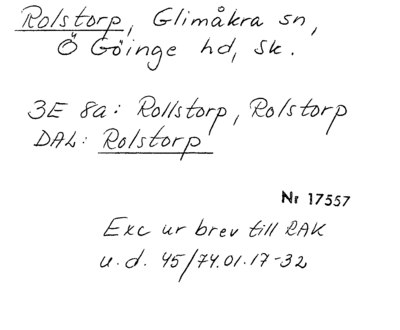 Rolstorp, Glimåkra sn,
Ö Göinge hd, Sk.
3E 8a: Rollstorp, Rolstorp
DAL: Rolstorp
Nr 17557
Exc ur brev till RAK
u.d. 45/74.01.17-32